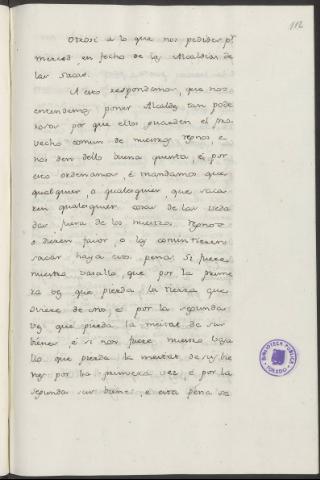 112
Otrosi a lo que nos pedides pr
merced, en fecho de las Alcaldias de
las sacas.
A esto respondemos, que nos
entendemos poner Alcaldes tan pode
rosos por que ellos guarden el pro
vecho comun de nuestros Regnos, e
nos den dello buena quenta, é por
esto ordenamos, é mandamos que
qualquier, o qualesquier, que saca
ren qualesquier cosas de las veda
das, fuera de los nuestros Regnos
o dieren favor, o los consintieren
sacar haya esta pena. Si fuere
nuestro vasallo, que por la prime
ra vez que pierda la tierra que
oviere de Nos é por la segunda
vez que pierda la meitat de sus
bienes, é si non fuere nuestro vasa
llo que pierda la meitat de sus bie
nes por la primera vez, é por la
segunda sus bienes, é esta pena se
BIBLIOTECA PUBLICA
TOLEDO